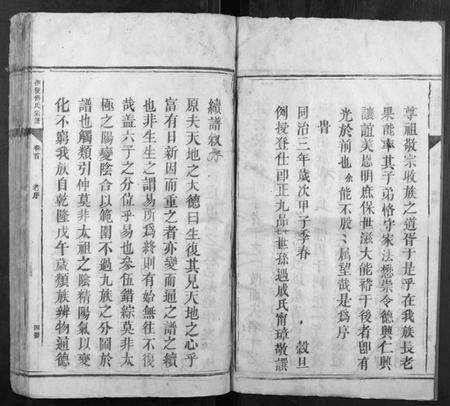 尊祖敬宗收族之道胥于是乎在我族長老
果能率其子弟恪守家法懋崇令德興仁興
讓誼美恩明庶保世滋大能裕于後者即有
光於前也余能不殷〻屬望哉是為序
旹
同治三年歲次甲子季春 穀旦
例授登仕郎正九品世孫遇咸氏甯璋敬譔
續譜叙序
原夫天地之大德曰生復其見天地之心乎
富有日新因而重之者亦變而通之譜之續
也非生生之謂易所為終則有始無往不復
哉蓋六子之分位乎易也參伍錯綜莫非太
極之陽變陰合以範圍不過九族之分圖於
譜也觸類引伸莫非太祖之陰精陽氣以變
化不窮我族自乾隆戊午歲類族辨物通德
氏宗譜
卷首
老序
四